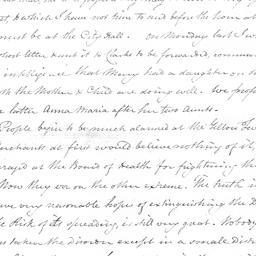 st & which I have not time to send before the hour at
must be at the City Hall. On Monday last I w
short letter & sent it to Clarks to be forwarded, commun
intelligence that Mary had a daughter on
th the Mother & Child are doing well. We propose
latter Anna Maria after her two Aunts.
People begin to be much alarmed at the Yellow Fev
erchants at first would believe nothing of it,
raged at the Board of Health for frightening th
Now they are on the other extreme. The truth is
ave very reasonable hopes of extinguishing the D
the Risk of its spreading is still very great. Nobody
has taken the disorder except in a small Dist